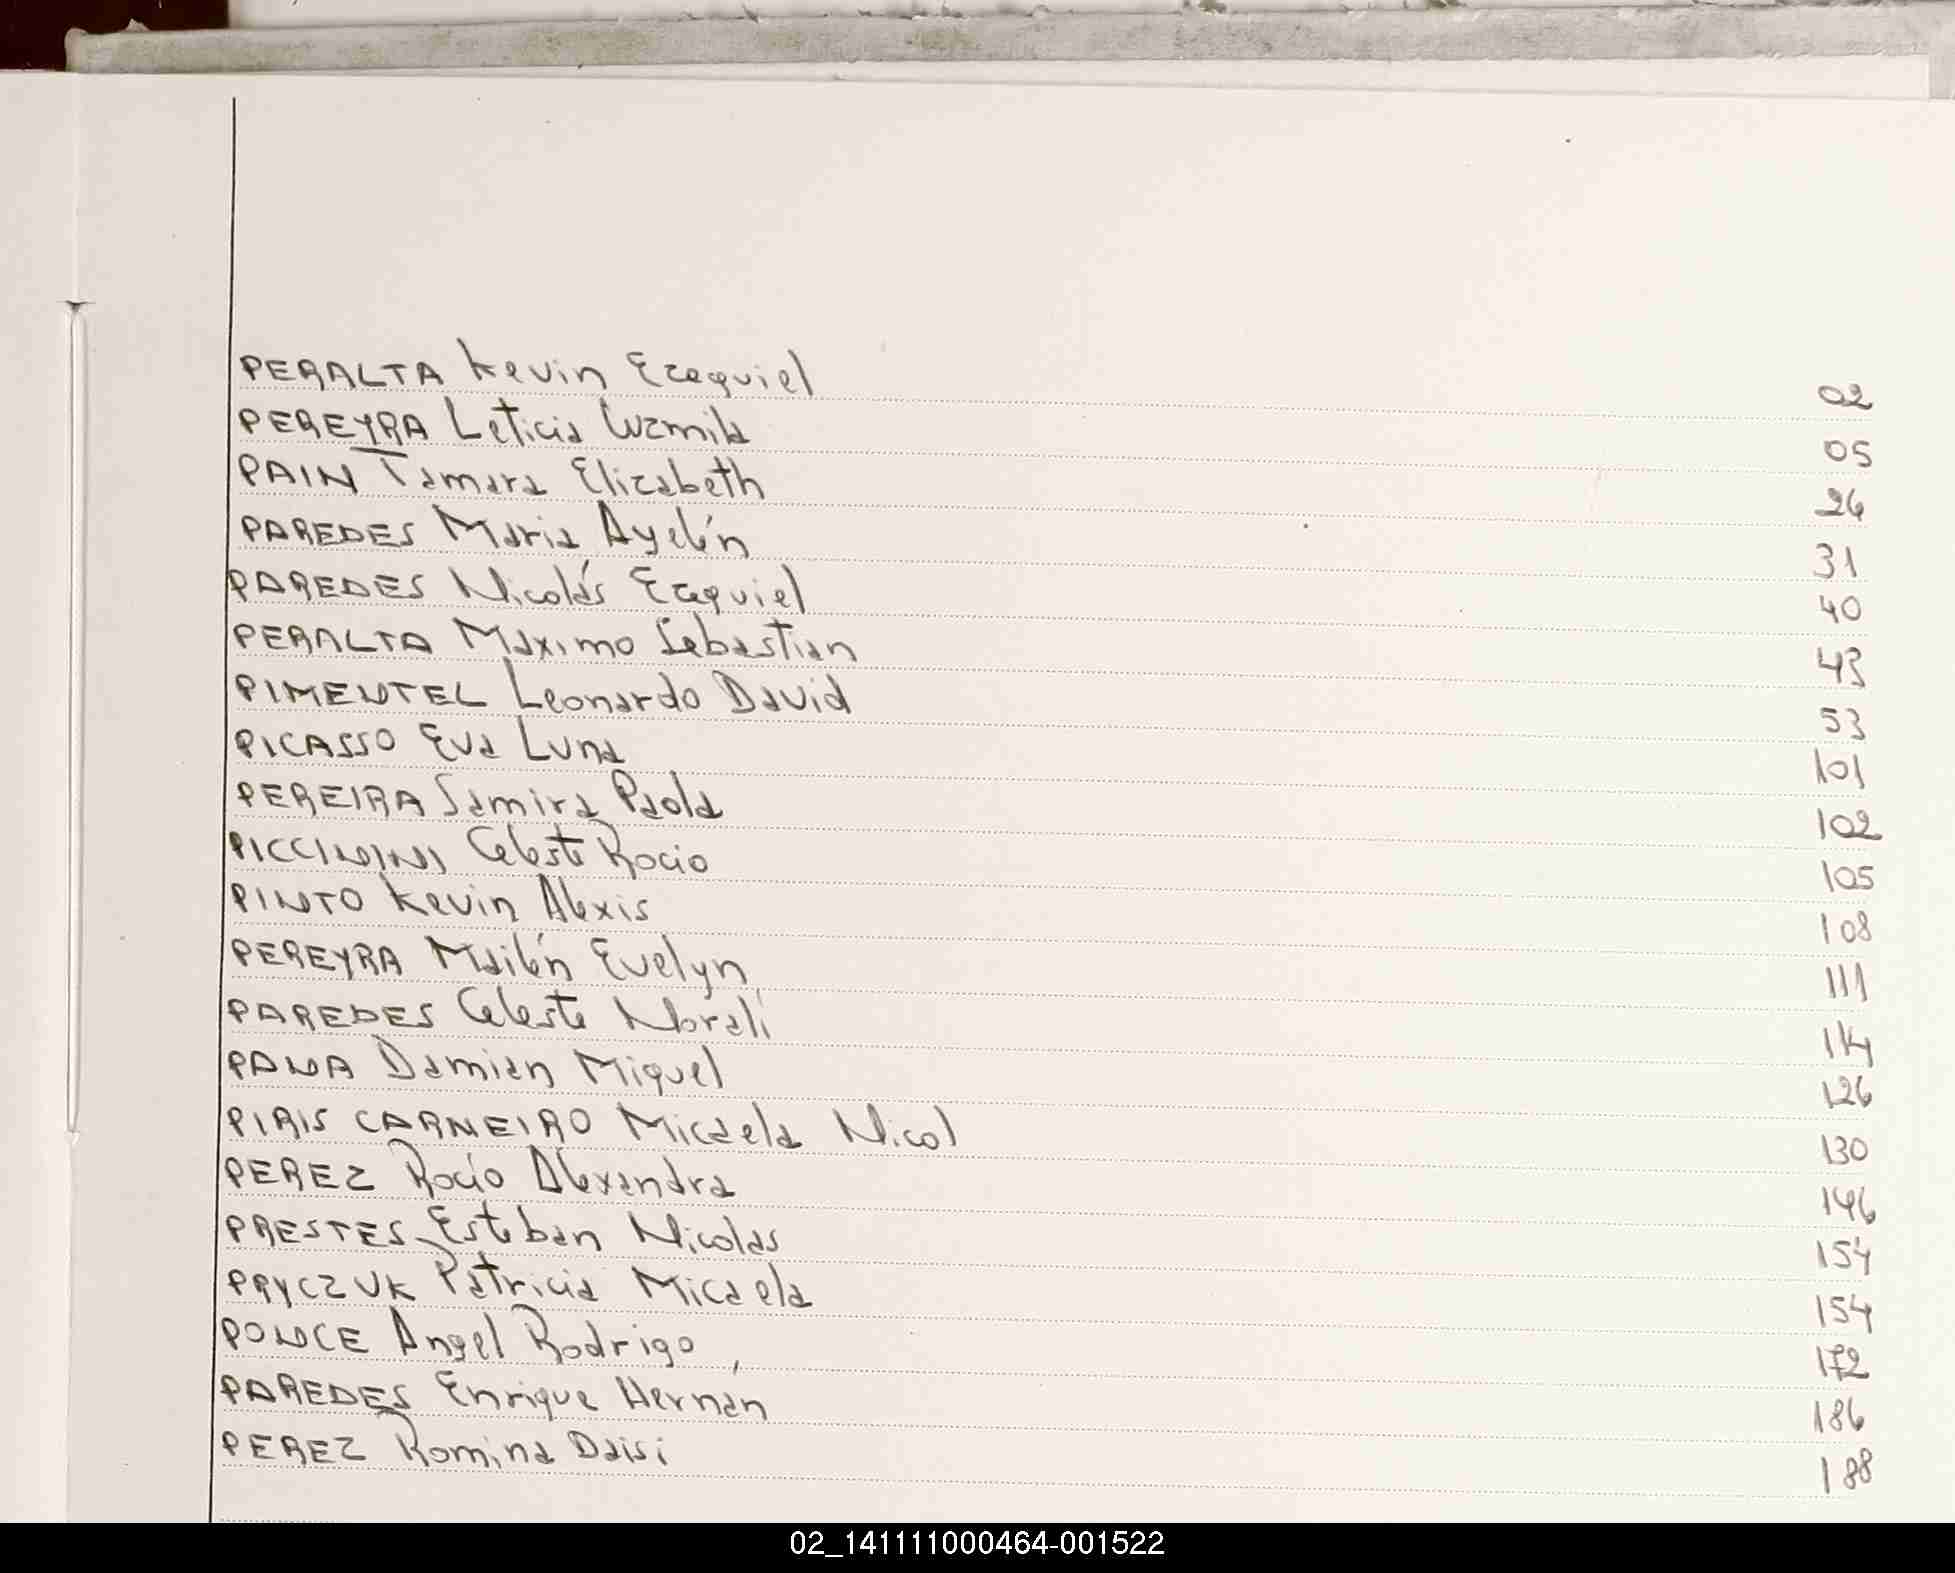 PERALTA Kevin Ezequiel 02
PEREYRA Leticia Luzmila 05
PAIN Tamara Elizabeth 26
PAREDES Maria Ayelén 31
PAREDES Nicolás Ezequiel 40
PERALTA Maximo Sebastian 43
PIMENTEL Leonardo David 53
PICASSO Eva Luna 101
PEREIRA Samira Paola 102
PICCININI Celeste Rocio 105
PINTO Kevin Alexis 108
PEREYRA Mailén Evelyn 111
PAREDES Celeste Noralí 114
PANA Damian Miguel 126
PIRIS CARNEIRO Micaela Nicol 130
PEREZ Rocío Alexandra 146
PRESTES Esteban Nicolas 154
PRYCZUK Patricia Micaela 154
PONCE Angel Rodrigo 172
PAREDES Enrique Hernán 186
PEREZ Romina Daisi 188
02_141111000464-001522